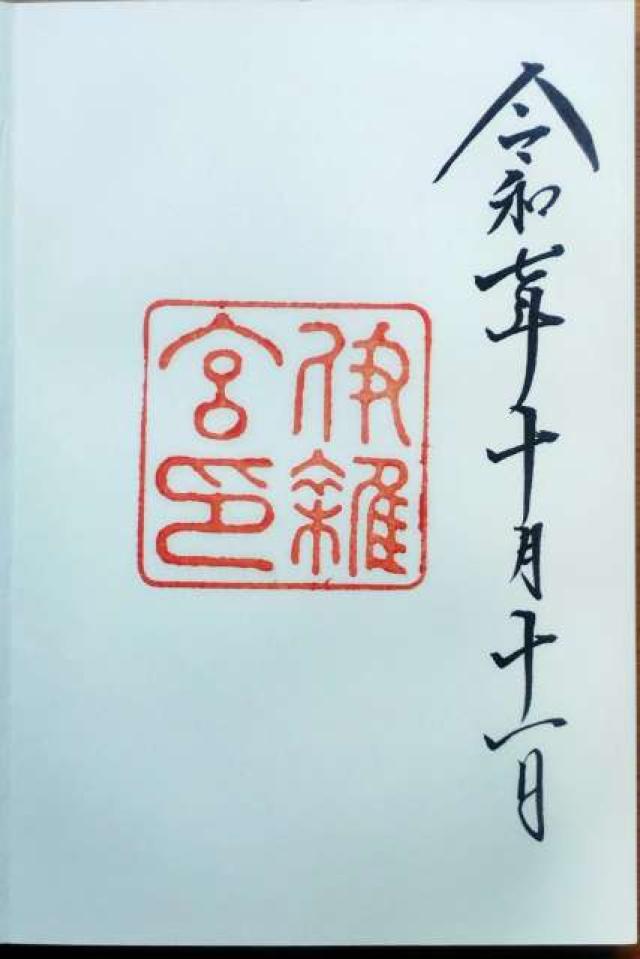 令和七年十月十一日
伊雜
宮印